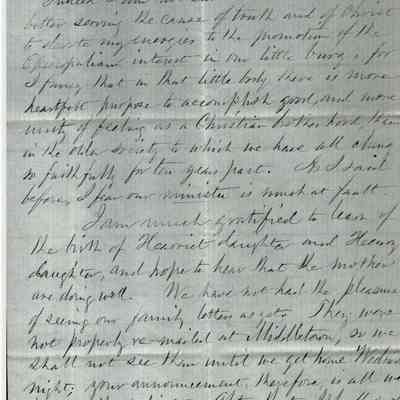 better serving the cause of truth and of Christ
to devote my energies to the promotion of the
Episcopalian interest in our little burg; for
I fancy that in that little body there is more
heartfelt purpose to accomplish good, and more
unity of feeling as a Christian brotherhood, than
in the older society to which we have all clung
so faithfully for ten years past. As I said
before, I fear our minister is much at fault.
I am much gratified to learn of
the birth of Harriet daughter and Henry
daughter, and hope to hear that the mother
are doing well. We have not had the pleasure
of seeing our family letters as yet. They were
not properly re-mailed at Middletown, so we
shall not see them until we get home Wednes
night; your announcement, therefore, is all we